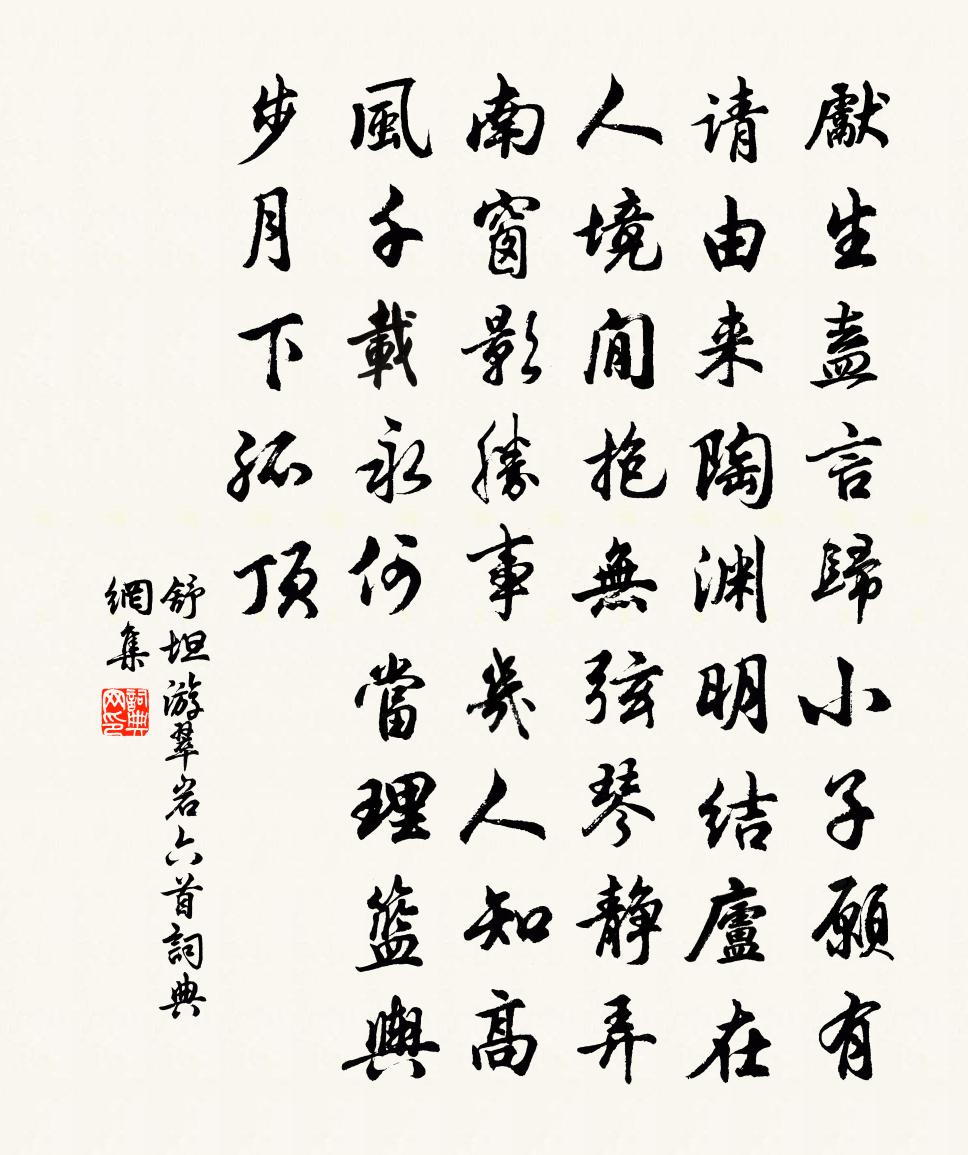 獻生盍言歸小子願有
请由来陶渊明結廬在
人境間抱無弦琴静弄
南窗影勝事幾人知高
風千載永何當理籃輿
步月下孤頂
舒坦游翠岩六首詞典
網集
詞典網印